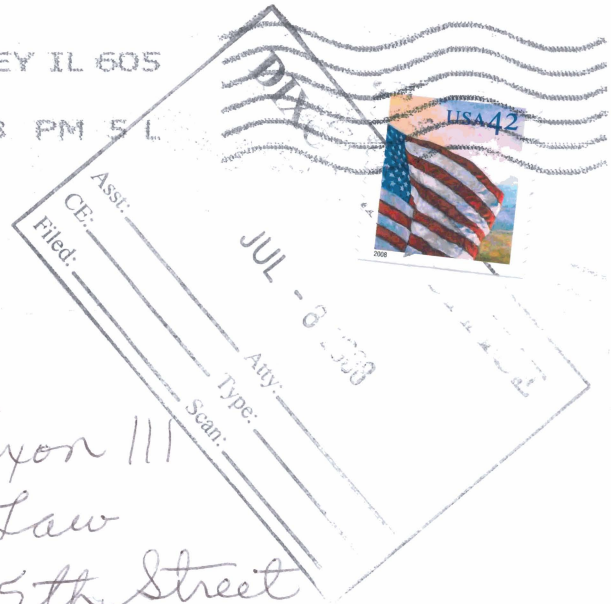 EY IL 605
PM 5 L
USA 42
2008
DIX
Asst:
CE:
Filed:
JUL - 8 2008
Atty:
Type:
Scan:
xon III
Law
5th Street